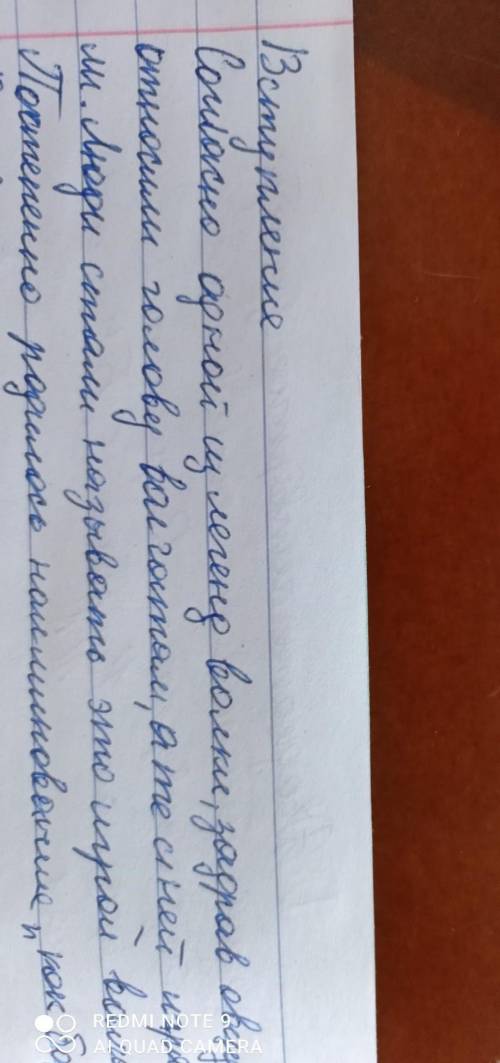 Вступление
Согласно одной из легенд волки, задрав ов
относили голову волчатам, а те с ней иг
ли. Люди стали называть это игрой вол
Постепенно родилось наименование "кок
REDMI NOTE 9
AI QUAD CAMERA